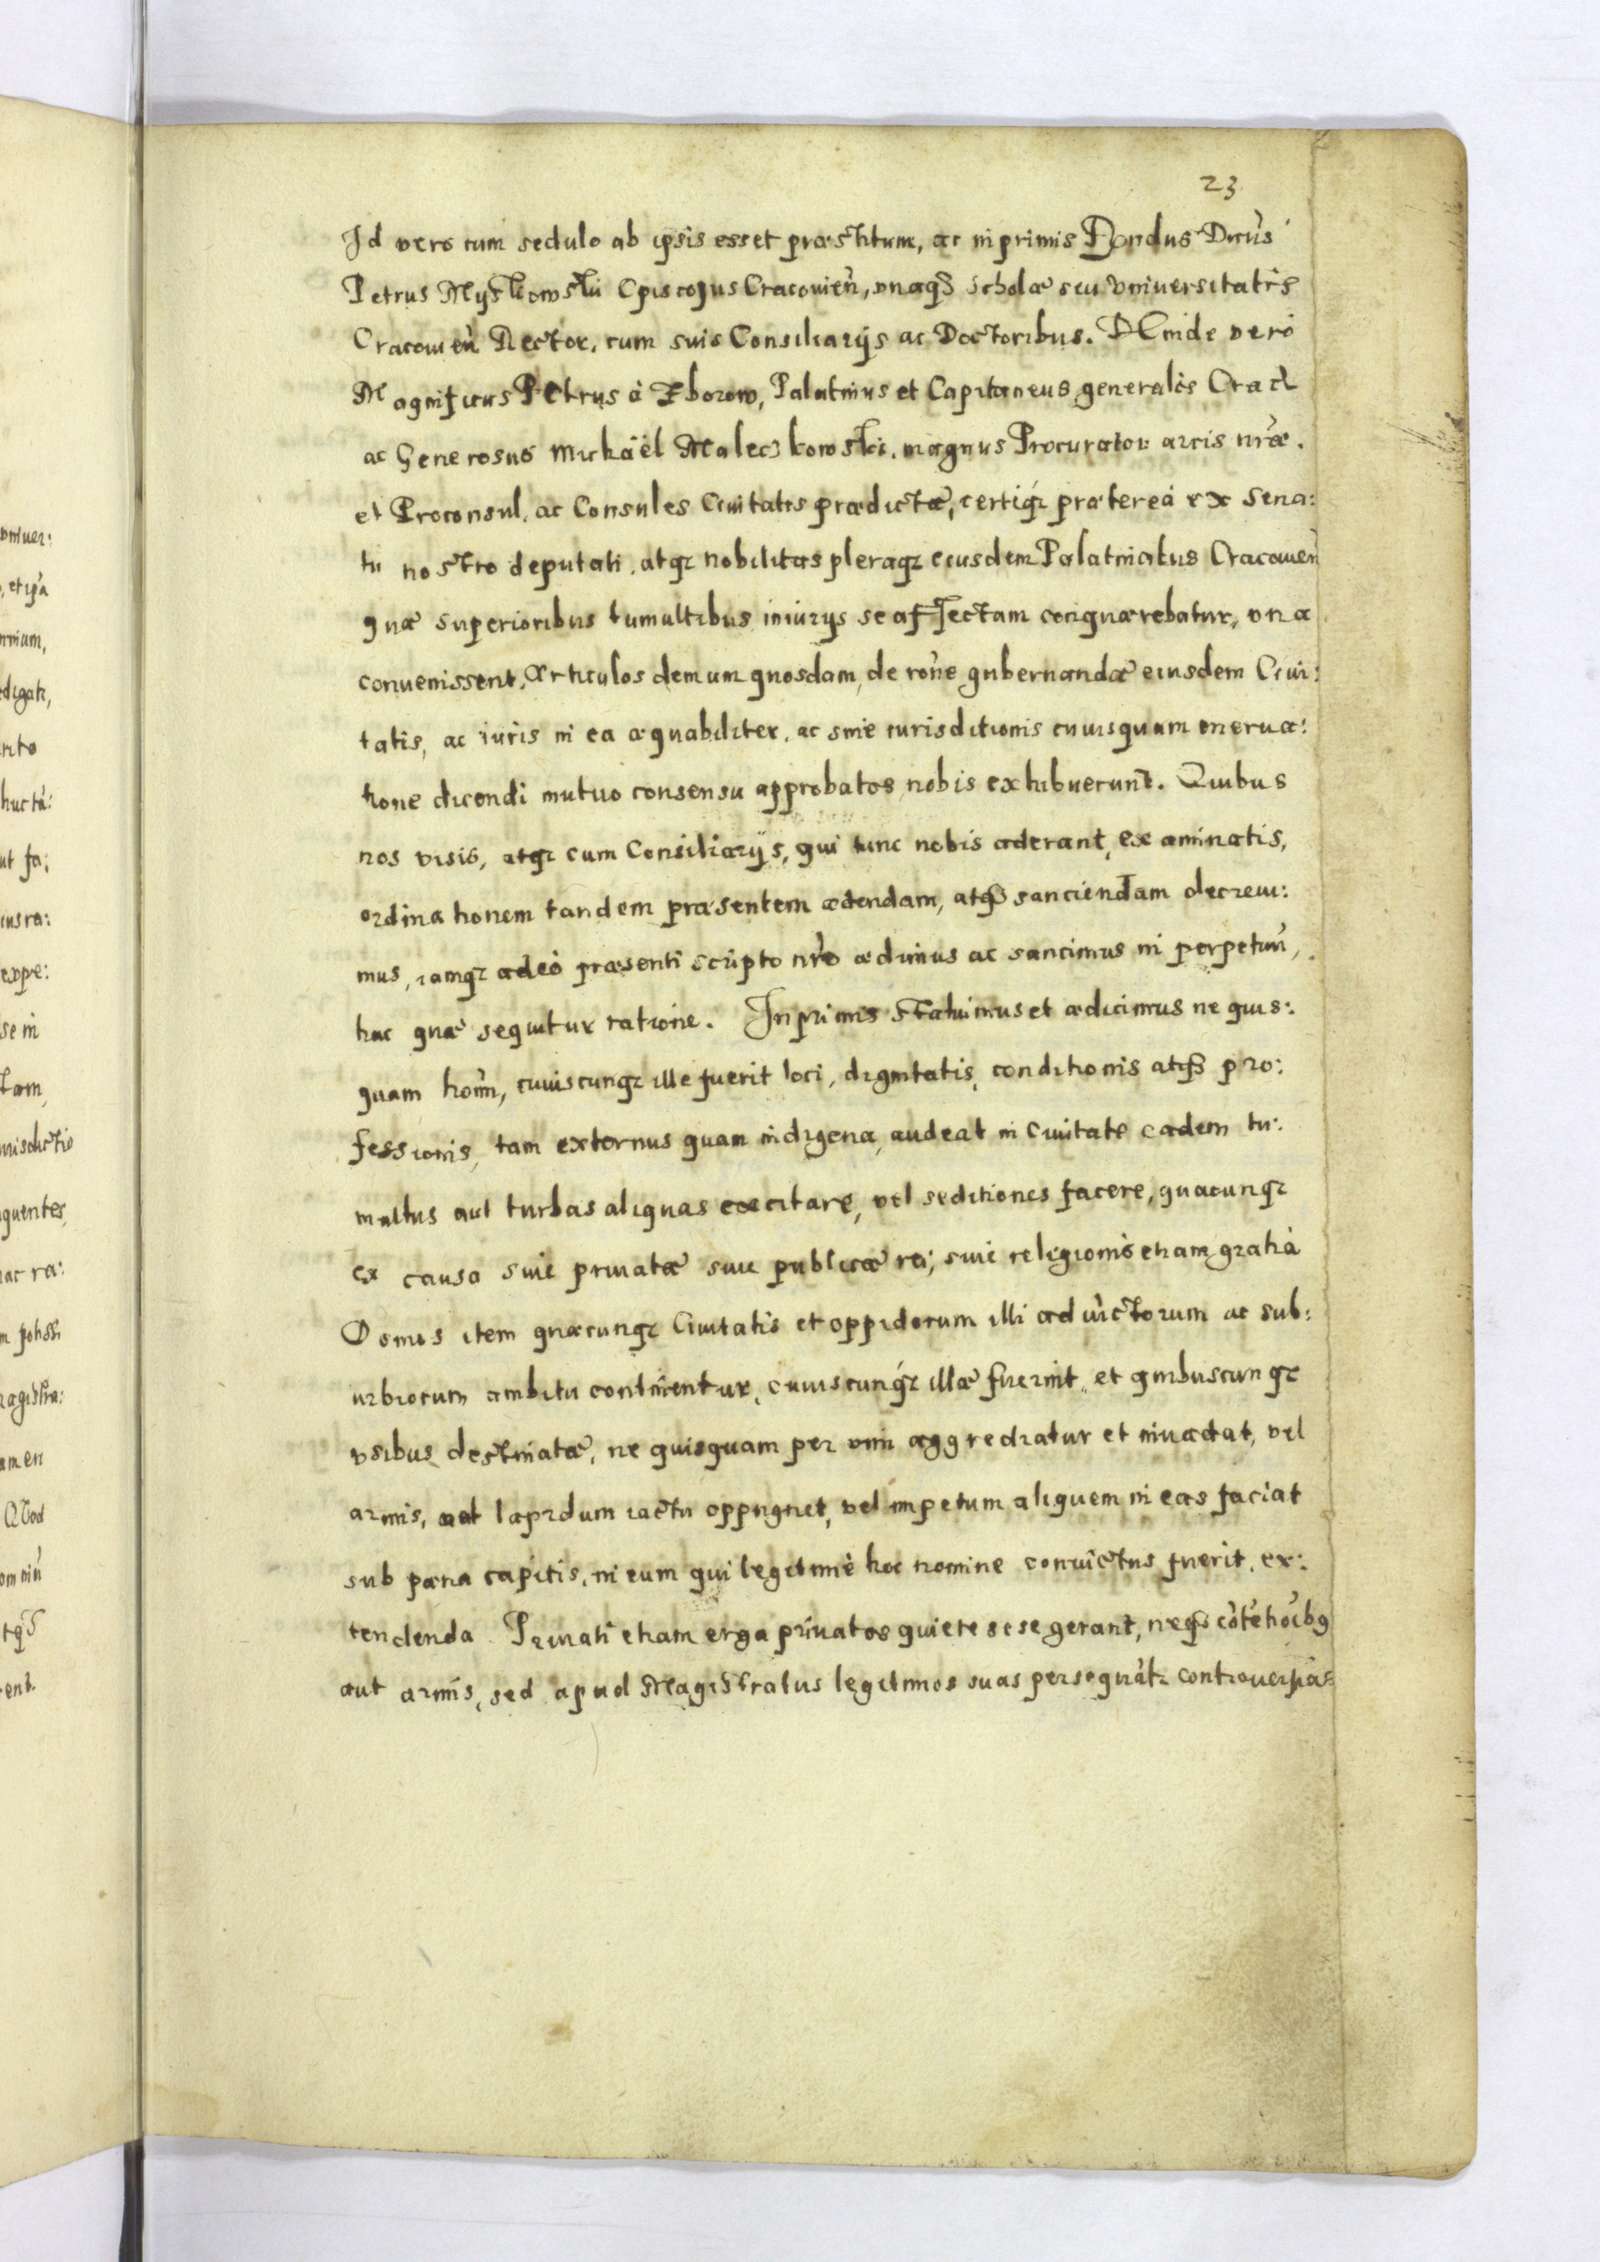 23
Id vero cum sedulo ab ipsis esset præstitum, ac inprimis Rēndus Dn̄us
Petrus Myskowski Episcopus Cracovien̄, unaqꝫ scholæ seu Universitatis
Cracovien̄ Rector, cum suis Consiliarijs ac Doctoribus. DEinde vero
Magnificus PEtrus à Zborow, Palatinus et Capitaneus generalis Crac̄
ac Generosus Michäel Maleczkowski, magnus Procurator arcis nr̄æ.
et Proconsul, ac Consules Civitatis prædictæ, certiqꝫ prætereà ex Sena:
tu nostro deputati, atqꝫ nobilitas pleraqꝫ eiusdem Palatinatus Cracovien̄
quæ superioribus tumultibus iniurijs se affectam conquærebatur, una
convenissent, Articulos demum quosdam, de rōne gubernandæ eiusdem Civi:
tatis, ac iuris in ea æquabiliter, ac sine iurisditionis cuiusquam enerva:
tione dicendi mutuo consensu approbatos nobis exhibuerunt. Quibus
nos visis, atqꝫ cum Consiliarijs, qui tunc nobis aderant, examinatis,
ordinationem tandem præsentem ædendam, atqꝫ sanciendam decrevi:
mus, iamqꝫ adeò præsenti scripto nr̄o ædimus ac sancimus in perpetuū,
hac quæ sequitur ratione. Inprimis statuimus et ædicimus ne quis:
quam hoīm, cuiuscunqꝫ ille fuerit loci, dignitatis, conditionis atqꝫ pro:
fessionis, tam externus quam indigena, audeat in civitate eadem tu:
multus aut turbas aliquas excitare, vel seditiones facere, quacunqꝫ
ex causa sive privatæ sive publicæ rei, sive religionis etiam gratià
Domos item quæcunqꝫ Civitatis et oppidorum illi advictorum ac sub:
urbiorum ambitu continentur, cuiuscunqꝫ illæ fuerint, et quibuscunqꝫ
usibus destinatæ, ne quisquam per vim aggrediatur et invadat, vel
armis, aut lapidum iactu oppugnet, vel impetum aliquem in eas faciat
sub pœna capitis, in eum qui legitimè hoc nomine convictus fuerit, ex:
tendenda. Privati etiam erga privatos quiete sese gerant, neqꝫ cōtētiōībꝯ
aut armis, sed apud Magistratus legitimos suas persequātr controversias